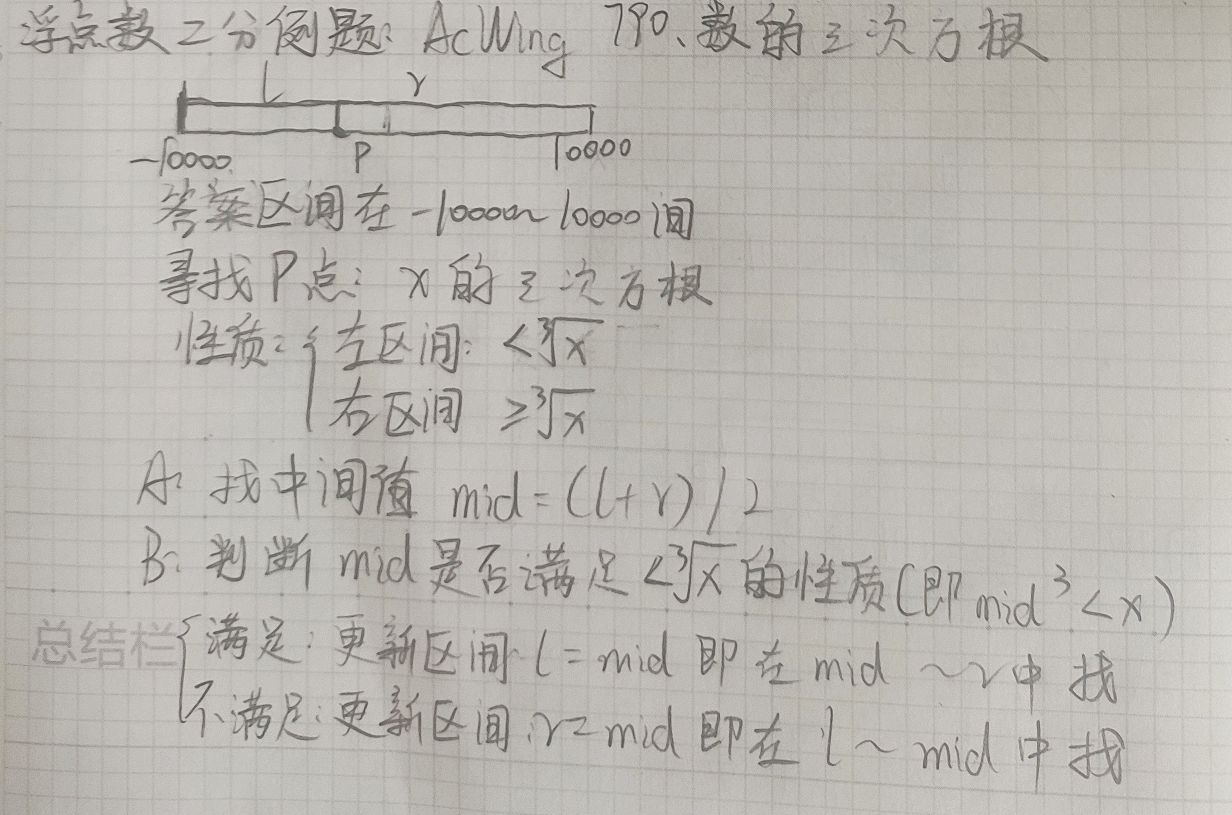 浮点数二分例题: AcWing 790、数的三次方根
l r
-10000 P 10000
答案区间在-10000~10000间
寻找P点: x的三次方根
性质: { 左区间: <∛x
右区间 ≥∛x
A: 找中间值 mid=(l+r)/2
B: 判断mid是否满足<∛x的性质(即mid³<x)
总结栏 { 满足: 更新区间 l=mid 即在mid~r中找
不满足: 更新区间.r=mid 即在l~mid中找